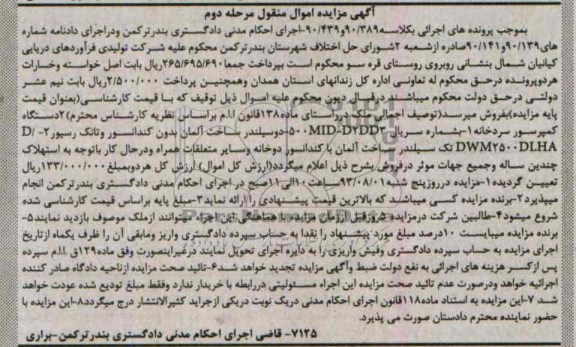 آگهی مزایده اموال منقول مرحله دوم
بموجب پرونده های اجرائی بکلاسه۹۰/۳۸۹و۹۰/۴۳۹-اجرای احکام مدنی دادگستری بندرترکمن ودراجرای دادنامه شماره
های۹۰/۱۳۹و۹۰/۱۴۱صادره ازشعبه ۲شورای حل اختلاف شهرستان بندرترکمن محکوم علیه شرکت تولیدی فرآوردهای دریایی
کیانیان شمال بنشانی روبروی روستای قره سو محکوم است بپرداخت جمعا۲۶۵/۶۹۵/۶۹۰ریال بابت اصل خواسته وخسارات
هردوپرونده درحق محکوم له تعاونی اداره کل زندانهای استان همدان وهمچنین پرداخت ۲/۵۰۰/۰۰۰ریال بابت نیم عشر
دولتی درحق دولت محکوم میباشد ودرقبال دیون محکوم علیه اموال ذیل توقیف که با قیمت کارشناسی(بعنوان قیمت
پایه مزایده)بفروش میرسد(توصیف اجمالی ملک درراستای ماده۱۳۸قانون ا.ا.م براساس نظریه کارشناس محترم)۲دستگاه
کمپرسور سردخانه۱-بشماره سریال ۵۰۰-MID-DYDD۳دوسیلندر ساخت آلمان بدون کندانسور وتانک رسیور۲-D/
DWM۲۵۰۰DLHA تک سیلندر ساخت آلمان با کندانسور دوخانه وسایر متعلقات همراه ودرحال کار باتوجه به استهلاک
چندین ساله وجمیع جهات موثر درفروش بشرح ذیل اعلام میگردد(ارزش کل اموال)ارزش کل هردوبمبلغ ۱۳۳/۰۰۰/۰۰۰ریال
تعیین گردیده۱-مزایده درروزپنج شنبه۹۳/۰۸/۰۱ساعت۱۰الی۱۱صبح در اجرای احکام مدنی دادگستری بندرترکمن انجام
میپذیرد۲-برنده مزایده کسی میباشد که بالاترین قیمت پیشنهادی را ارائه نماید۳-مبلغ پایه براساس قیمت کارشناسی شده
شروع میشود۴-طالبین شرکت درمزایده ۵روزقبل اززمان مزایده با هماهنگی این اجراء میتوانند ازملک موصوف بازدید نمایند۵-
برنده مزایده میبایست ۱۰درصد مبلغ مورد پیشنهاد را نقدا به حساب سپرده دادگستری واریز ومابقی آن را ظرف یکماه ازتاریخ
اجرای مزایده به حساب سپرده دادگستری وفیش واریزی را به دایره اجرای تحویل نمایند درغیراینصورت وفق ماده۱۲۹ق ا.ا.م سپرده
پس ازکسر هزینه های اجرائی به نفع دولت ضبط وآگهی مزایده تجدید خواهد شد۶-تائید صحت مزایده ازناحیه دادگاه صادر کننده
اجرائیه خواهد ودرصورت عدم تائید صحت مزایده این اجراء مسئولیتی دررابطه با خریدار ندارد وفقط مبلغ تودیع شده عودت خواهد
شد ۷-این مزایده به استناد ماده۱۱۸قانون اجرای احکام مدنی دریک نوبت دریکی ازجراید کثیرالانتشار درج میگردد۸-این مزایده با
حضور نماینده محترم دادستان صورت می پذیرد.
۷۱۲۵- قاضی اجرای احکام مدنی دادگستری بندرترکمن-براری